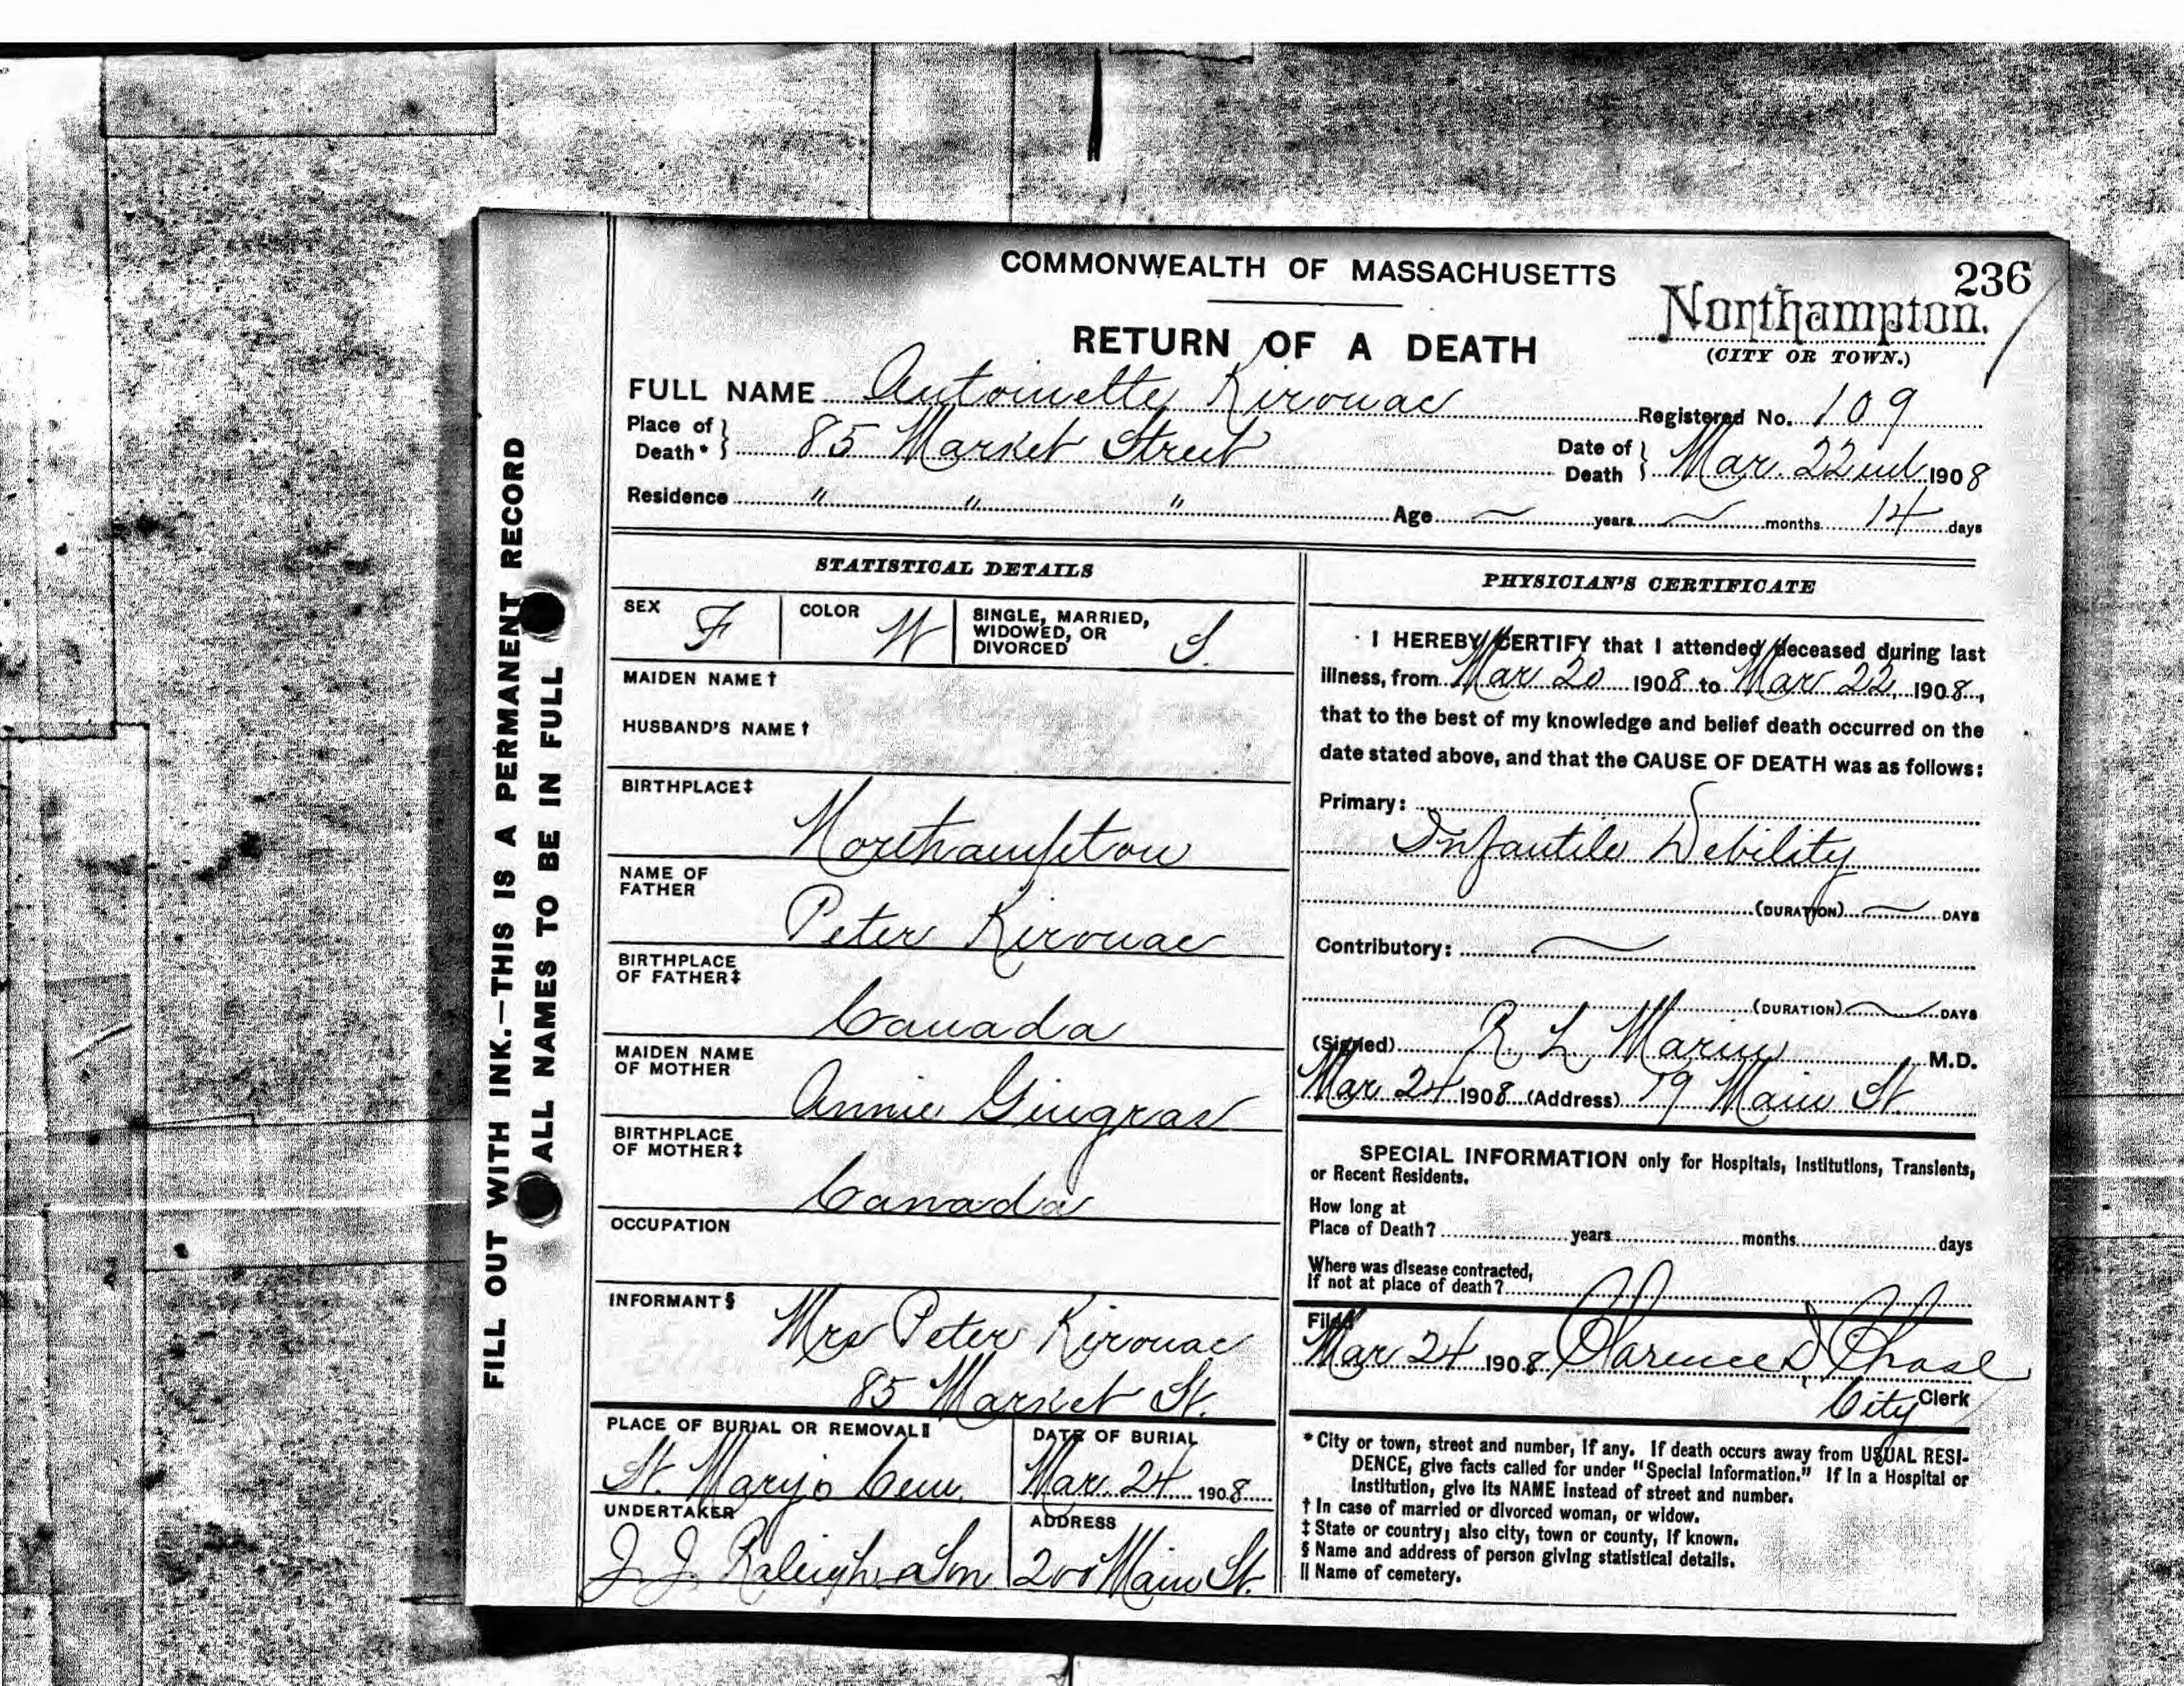 236
COMMONWEALTH OF MASSACHUSETTS
Northampton.
(CITY OR TOWN.)
RETURN OF A DEATH
FULL NAME Antoinette Kirouac Registered No. 109
Place of Death* 85 Market Street Date of Death Mar. 22nd 1908
Residence " " " Age ~ years ~ months 14 days
FILL OUT WITH INK.—THIS IS A PERMANENT RECORD
ALL NAMES TO BE IN FULL
STATISTICAL DETAILS
SEX F COLOR W SINGLE, MARRIED, WIDOWED, OR DIVORCED S.
MAIDEN NAME†
HUSBAND'S NAME†
BIRTHPLACE‡
Northampton
NAME OF FATHER
Peter Kirouac
BIRTHPLACE OF FATHER‡
Canada
MAIDEN NAME OF MOTHER
Annie Gingras
BIRTHPLACE OF MOTHER‡
Canada
OCCUPATION
INFORMANT§
Mrs Peter Kirouac
85 Market St.
PLACE OF BURIAL OR REMOVAL||
St. Mary's Cem.
DATE OF BURIAL
Mar. 24 1908
UNDERTAKER
J. J. Raleigh & Son
ADDRESS
200 Main St.
PHYSICIAN'S CERTIFICATE
I HEREBY CERTIFY that I attended deceased during last
illness, from Mar 20 1908 to Mar 22, 1908,
that to the best of my knowledge and belief death occurred on the
date stated above, and that the CAUSE OF DEATH was as follows:
Primary:
Infantile Debility
(DURATION) ~ DAYS
Contributory: ~
(DURATION) ~ DAYS
(Signed) R L Marin M.D.
Mar 24 1908 (Address) 79 Main St.
SPECIAL INFORMATION only for Hospitals, Institutions, Transients,
or Recent Residents.
How long at
Place of Death? years months days
Where was disease contracted,
if not at place of death?
Filed
Mar 24 1908 Clarence D Chase
City Clerk
* City or town, street and number, if any. If death occurs away from USUAL RESI-
DENCE, give facts called for under "Special Information." If in a Hospital or
Institution, give its NAME instead of street and number.
† In case of married or divorced woman, or widow.
‡ State or country; also city, town or county, if known.
§ Name and address of person giving statistical details.
|| Name of cemetery.